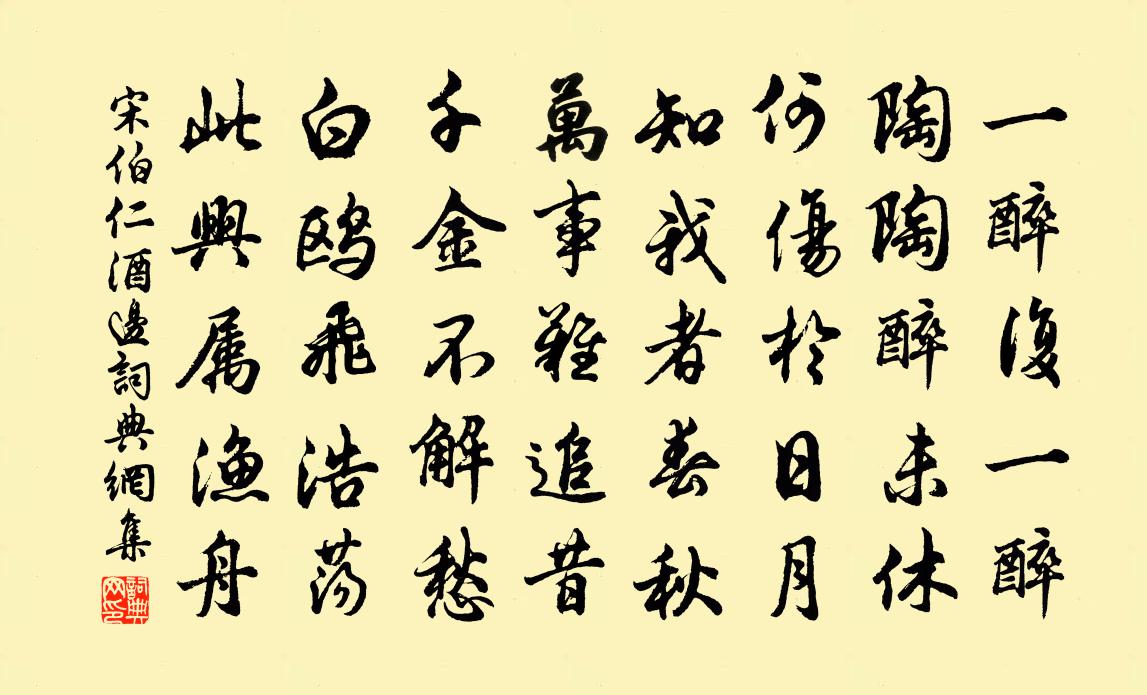 一醉復一醉
陶陶醉未休
何傷於日月
知我者春秋
萬事難追昔
千金不解愁
白鸥飛浩荡
此興属漁舟
宋伯仁酒邊詞典網集
詞典網印